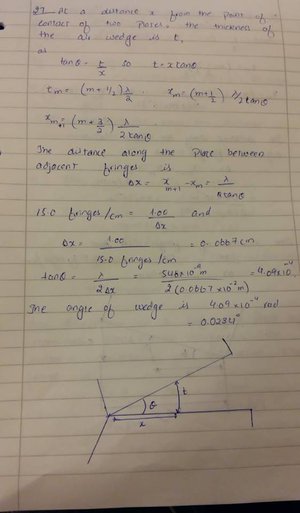 27 At a distance x from the point of
contact of two plates the thickness of
the air wedge is t,
as
tanθ = t/x so t = x tanθ
tm = (m+1/2) λ/2 xm = (m+1/2) λ/2tanθ
xm+1 = (m+3/2) λ/2tanθ
The distance along the plate between
adjacent fringes is
Δx = xm+1 - xm = λ/2tanθ
15.0 fringes/cm = 1.00/Δx and
Δx = 1.00/15.0 fringes/cm = 0.0667cm
tanθ = λ/2Δx = 546×10⁻⁹m/2(0.0667×10⁻²m) = 4.09×10⁻⁴
The angle of wedge is 4.09×10⁻⁴ rad
= 0.0234°
θ
t
x